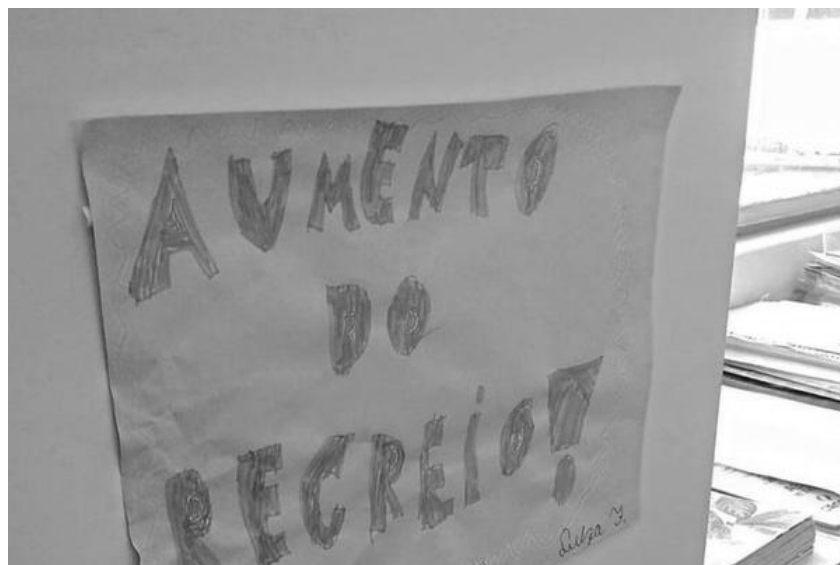 AUMENTO
DO
RECREiO!
Luiza F.